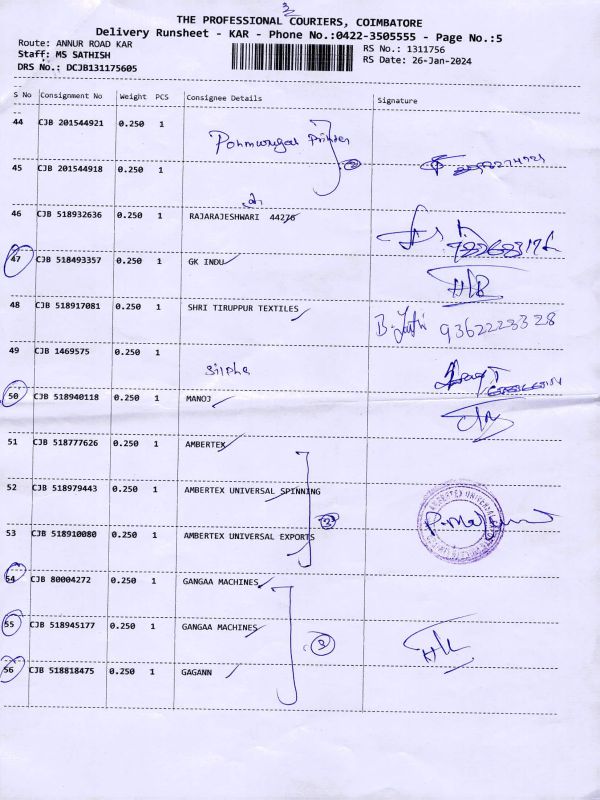 3
THE PROFESSIONAL COURIERS, COIMBATORE
Delivery Runsheet - KAR - Phone No.:0422-3505555 - Page No.:5
Route: ANNUR ROAD KAR RS No.: 1311756
Staff: MS SATHISH RS Date: 26-Jan-2024
DRS No.: DCJB131175605
S No Consignment No Weight PCS Consignee Details Signature
44 CJB 201544921 0.250 1
45 CJB 201544918 0.250 1
46 CJB 518932636 0.250 1 RAJARAJESHWARI 44276
47 CJB 518493357 0.250 1 GK INDU
48 CJB 518917081 0.250 1 SHRI TIRUPPUR TEXTILES 9362223328
49 CJB 1469575 0.250 1
50 CJB 518940118 0.250 1 MANOJ
51 CJB 518777626 0.250 1 AMBERTEX
52 CJB 518979443 0.250 1 AMBERTEX UNIVERSAL SPINNING
53 CJB 518910080 0.250 1 AMBERTEX UNIVERSAL EXPORTS
54 CJB 80004272 0.250 1 GANGAA MACHINES
55 CJB 518945177 0.250 1 GANGAA MACHINES
56 CJB 518818475 0.250 1 GAGANN